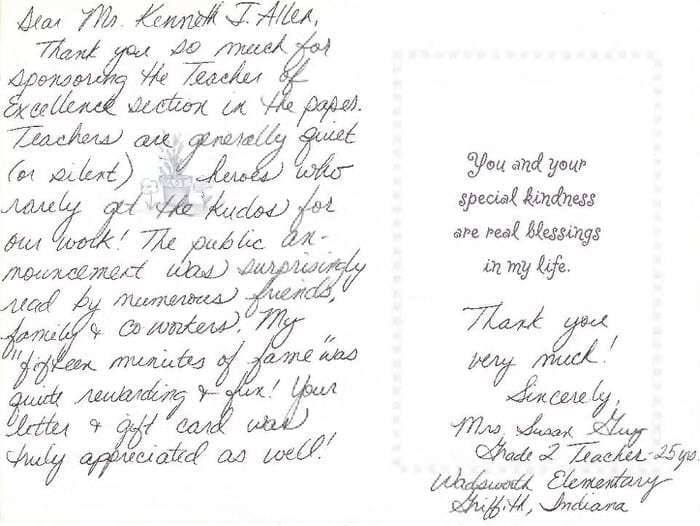 Dear Mr. Kenneth J. Allen,
Thank you so much for
sponsoring the Teacher of
Excellence section in the paper.
Teachers are generally quiet
(or silent) heroes who
rarely get the kudos for
our work! The public an-
nouncement was surprisingly
read by numerous friends,
family & coworkers. My
"fifteen minutes of fame" was
quite rewarding & fun! Your
letter & gift card was
truly appreciated as well!
You and your
special kindness
are real blessings
in my life.
Thank you
very much!
Sincerely,
Mrs. Susan
Grade 2 Teacher - 25 yrs.
Wadsworth Elementary
Griffith, Indiana